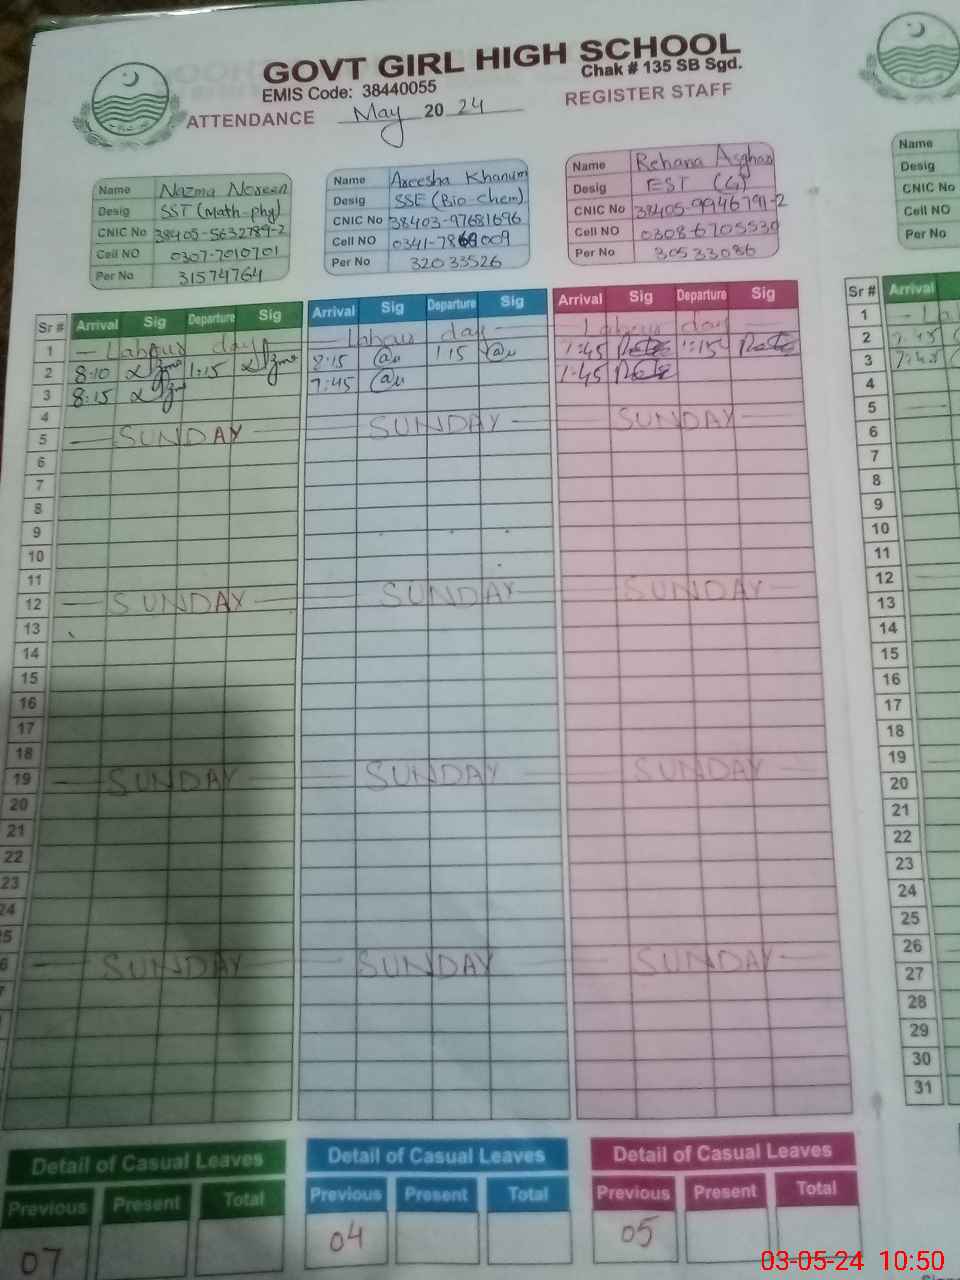 GOVT GIRL HIGH SCHOOL
Chak # 135 SB Sgd.
EMIS Code: 38440055
ATTENDANCE May 20 24 REGISTER STAFF
Name Nazma Noreen
Desig SST (Math-phy)
CNIC No 38405-5632789-2
Cell NO 0307-7010701
Per No 31574764
Name Areesha Khanum
Desig SSE (Bio-chem)
CNIC No 38403-97681696
Cell NO 0341-7869009
Per No 32033526
Name Rehana Asghar
Desig EST (G)
CNIC No 38405-9946791-2
Cell NO 0308-6705530
Per No 30533086
Name
Desig
CNIC No
Cell NO
Per No
Sr # Arrival Sig Departure Sig Arrival Sig Departure Sig Arrival Sig Departure Sig Sr # Arrival
1 Labour day Labour day Labour day 1
2 8:10 1:15 8:15 1:15 7:45 1:15 2 7:45
3 8:15 7:45 7:45 3 7:45
4 4
5 SUNDAY SUNDAY SUNDAY 5
6 6
7 7
8 8
9 9
10 10
11 11
12 SUNDAY SUNDAY SUNDAY 12
13 13
14 14
15 15
16 16
17 17
18 18
19 SUNDAY SUNDAY SUNDAY 19
20 20
21 21
22 22
23 23
24 24
25 25
26 SUNDAY SUNDAY SUNDAY 26
27
28
29
30
31
Detail of Casual Leaves Detail of Casual Leaves Detail of Casual Leaves
Previous Present Total Previous Present Total Previous Present Total
07 04 05
03-05-24 10:50